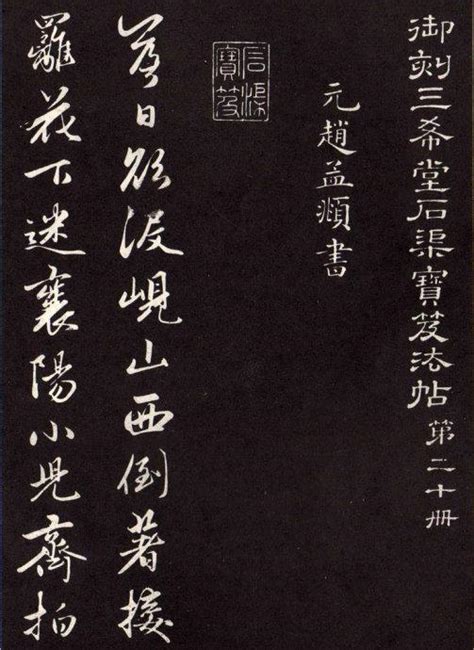 御刻三希堂石渠寶笈法帖 第二十冊
元趙孟頫書
石渠
寶笈
落日欲沒峴山西倒著接
䍦花下迷襄陽小兒齊拍